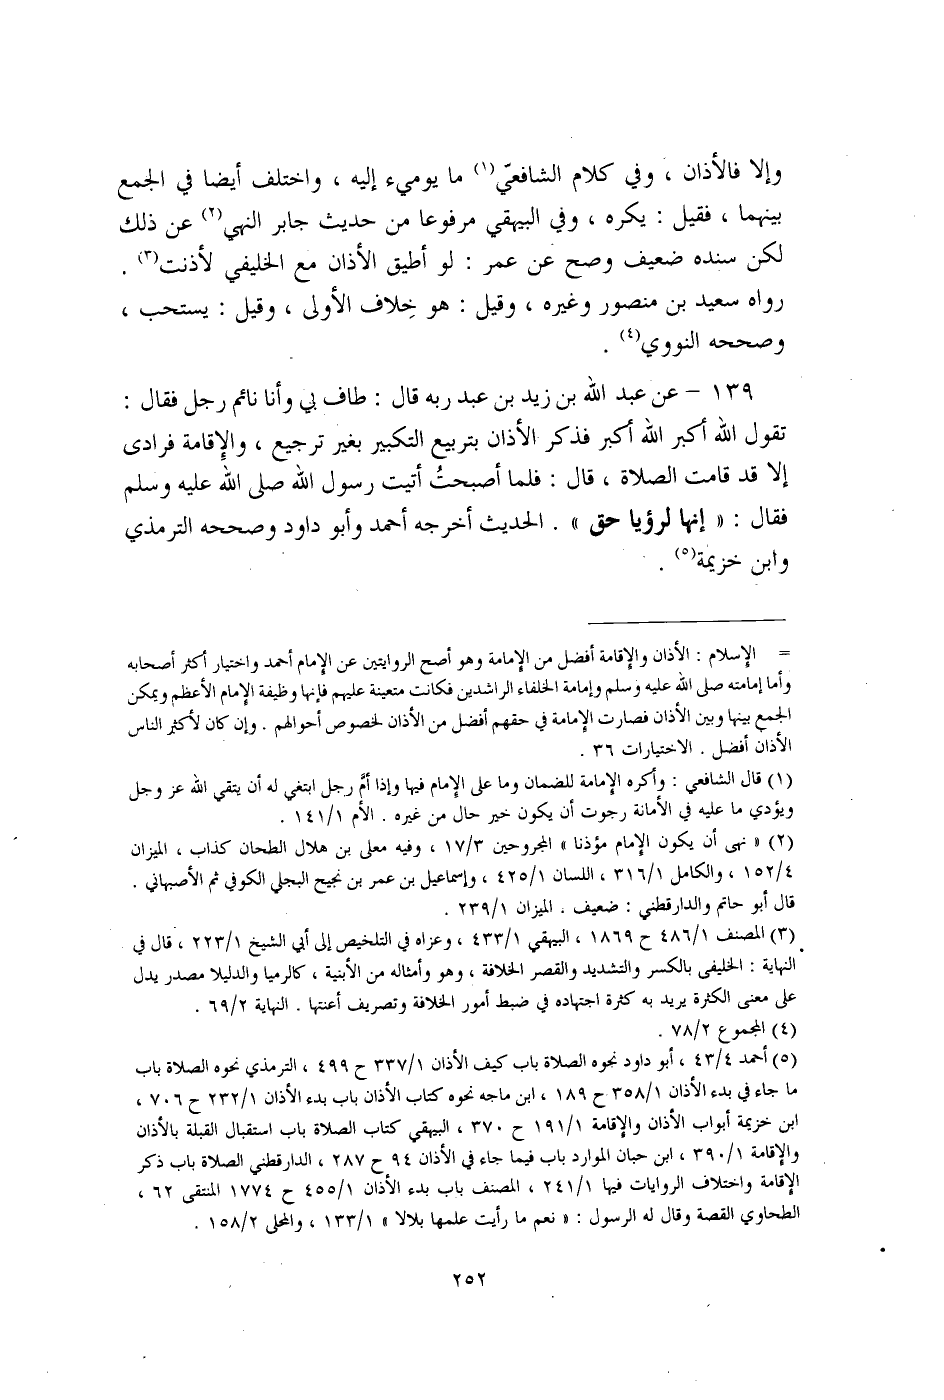 وإلا فالأذان ، وفي كلام الشافعيّ(١) ما يوميء إليه ، واختلف أيضا في الجمع
بينهما ، فقيل : يكره ، وفي البيهقي مرفوعا من حديث جابر النهي(٢) عن ذلك
لكن سنده ضعيف وصح عن عمر : لو أطيق الأذان مع الخليفي لأذنت(٣) .
رواه سعيد بن منصور وغيره ، وقيل : هو خِلاف الأولى ، وقيل : يستحب ،
وصححه النووي(٤) .
١٣٩ – عن عبد الله بن زيد بن عبد ربه قال : طاف بي وأنا نائم رجل فقال :
تقول الله أكبر الله أكبر فذكر الأذان بتربيع التكبير بغير ترجيع ، والإقامة فرادى
إلا قد قامت الصلاة ، قال : فلما أصبحتُ أتيت رسول الله صلى الله عليه وسلم
فقال : « إنها لرؤيا حق » . الحديث أخرجه أحمد وأبو داود وصححه الترمذي
وابن خزيمة(٥) .
= الإسلام : الأذان والإقامة أفضل من الإمامة وهو أصح الروايتين عن الإمام أحمد واختيار أكثر أصحابه
وأما إمامته صلى الله عليه وسلم وإمامة الخلفاء الراشدين فكانت متعينة عليهم فإنها وظيفة الإمام الأعظم ويمكن
الجمع بينها وبين الأذان فصارت الإمامة في حقهم أفضل من الأذان لخصوص أحوالهم . وإن كان لأكثر الناس
الأذان أفضل . الاختيارات ٣٦ .
(١) قال الشافعي : وأكره الإمامة للضمان وما على الإمام فيها وإذا أمَّ رجل ابتغي له أن يتقي الله عز وجل
ويؤدي ما عليه في الأمانة رجوت أن يكون خير حال من غيره . الأم ١٤١/١ .
(٢) « نهى أن يكون الإمام مؤذنا » المجروحين ١٧/٣ ، وفيه معلى بن هلال الطحان كذاب ، الميزان
١٥٢/٤ ، والكامل ٣١٦/١ ، اللسان ٤٢٥/١ ، وإسماعيل بن عمر بن نجيح البجلي الكوفي ثم الأصبهاني .
قال أبو حاتم والدارقطني : ضعيف . الميزان ٢٣٩/١ .
(٣) المصنف ٤٨٦/١ ح ١٨٦٩ ، البيهقي ٤٣٣/١ ، وعزاه في التلخيص إلى أبي الشيخ ٢٢٣/١ ، قال في
النهاية : الخليفى بالكسر والتشديد والقصر الخلافة ، وهو وأمثاله من الأبنية ، كالرميا والدليلا مصدر يدل
على معنى الكثرة يريد به كثرة اجتهاده في ضبط أمور الخلافة وتصريف أعنتها . النهاية ٦٩/٢ .
(٤) المجموع ٧٨/٢ .
(٥) أحمد ٤٣/٤ ، أبو داود نحوه الصلاة باب كيف الأذان ٣٣٧/١ ح ٤٩٩ ، الترمذي نحوه الصلاة باب
ما جاء في بدء الأذان ٣٥٨/١ ح ١٨٩ ، ابن ماجه نحوه كتاب الأذان باب بدء الأذان ٢٣٢/١ ح ٧٠٦ ،
ابن خزيمة أبواب الأذان والإقامة ١٩١/١ ح ٣٧٠ ، البيهقي كتاب الصلاة باب استقبال القبلة بالأذان
والإقامة ٣٩٠/١ ، ابن حبان الموارد باب فيما جاء في الأذان ٩٤ ح ٢٨٧ ، الدارقطني الصلاة باب ذكر
الإقامة واختلاف الروايات فيها ٢٤١/١ ، المصنف باب بدء الأذان ٤٥٥/١ ح ١٧٧٤ المنتقى ٦٢ ،
الطحاوي القصة وقال له الرسول : « نعم ما رأيت علمها بلالا » ١٣٣/١ ، والمحلى ١٥٨/٢ .
٢٥٢